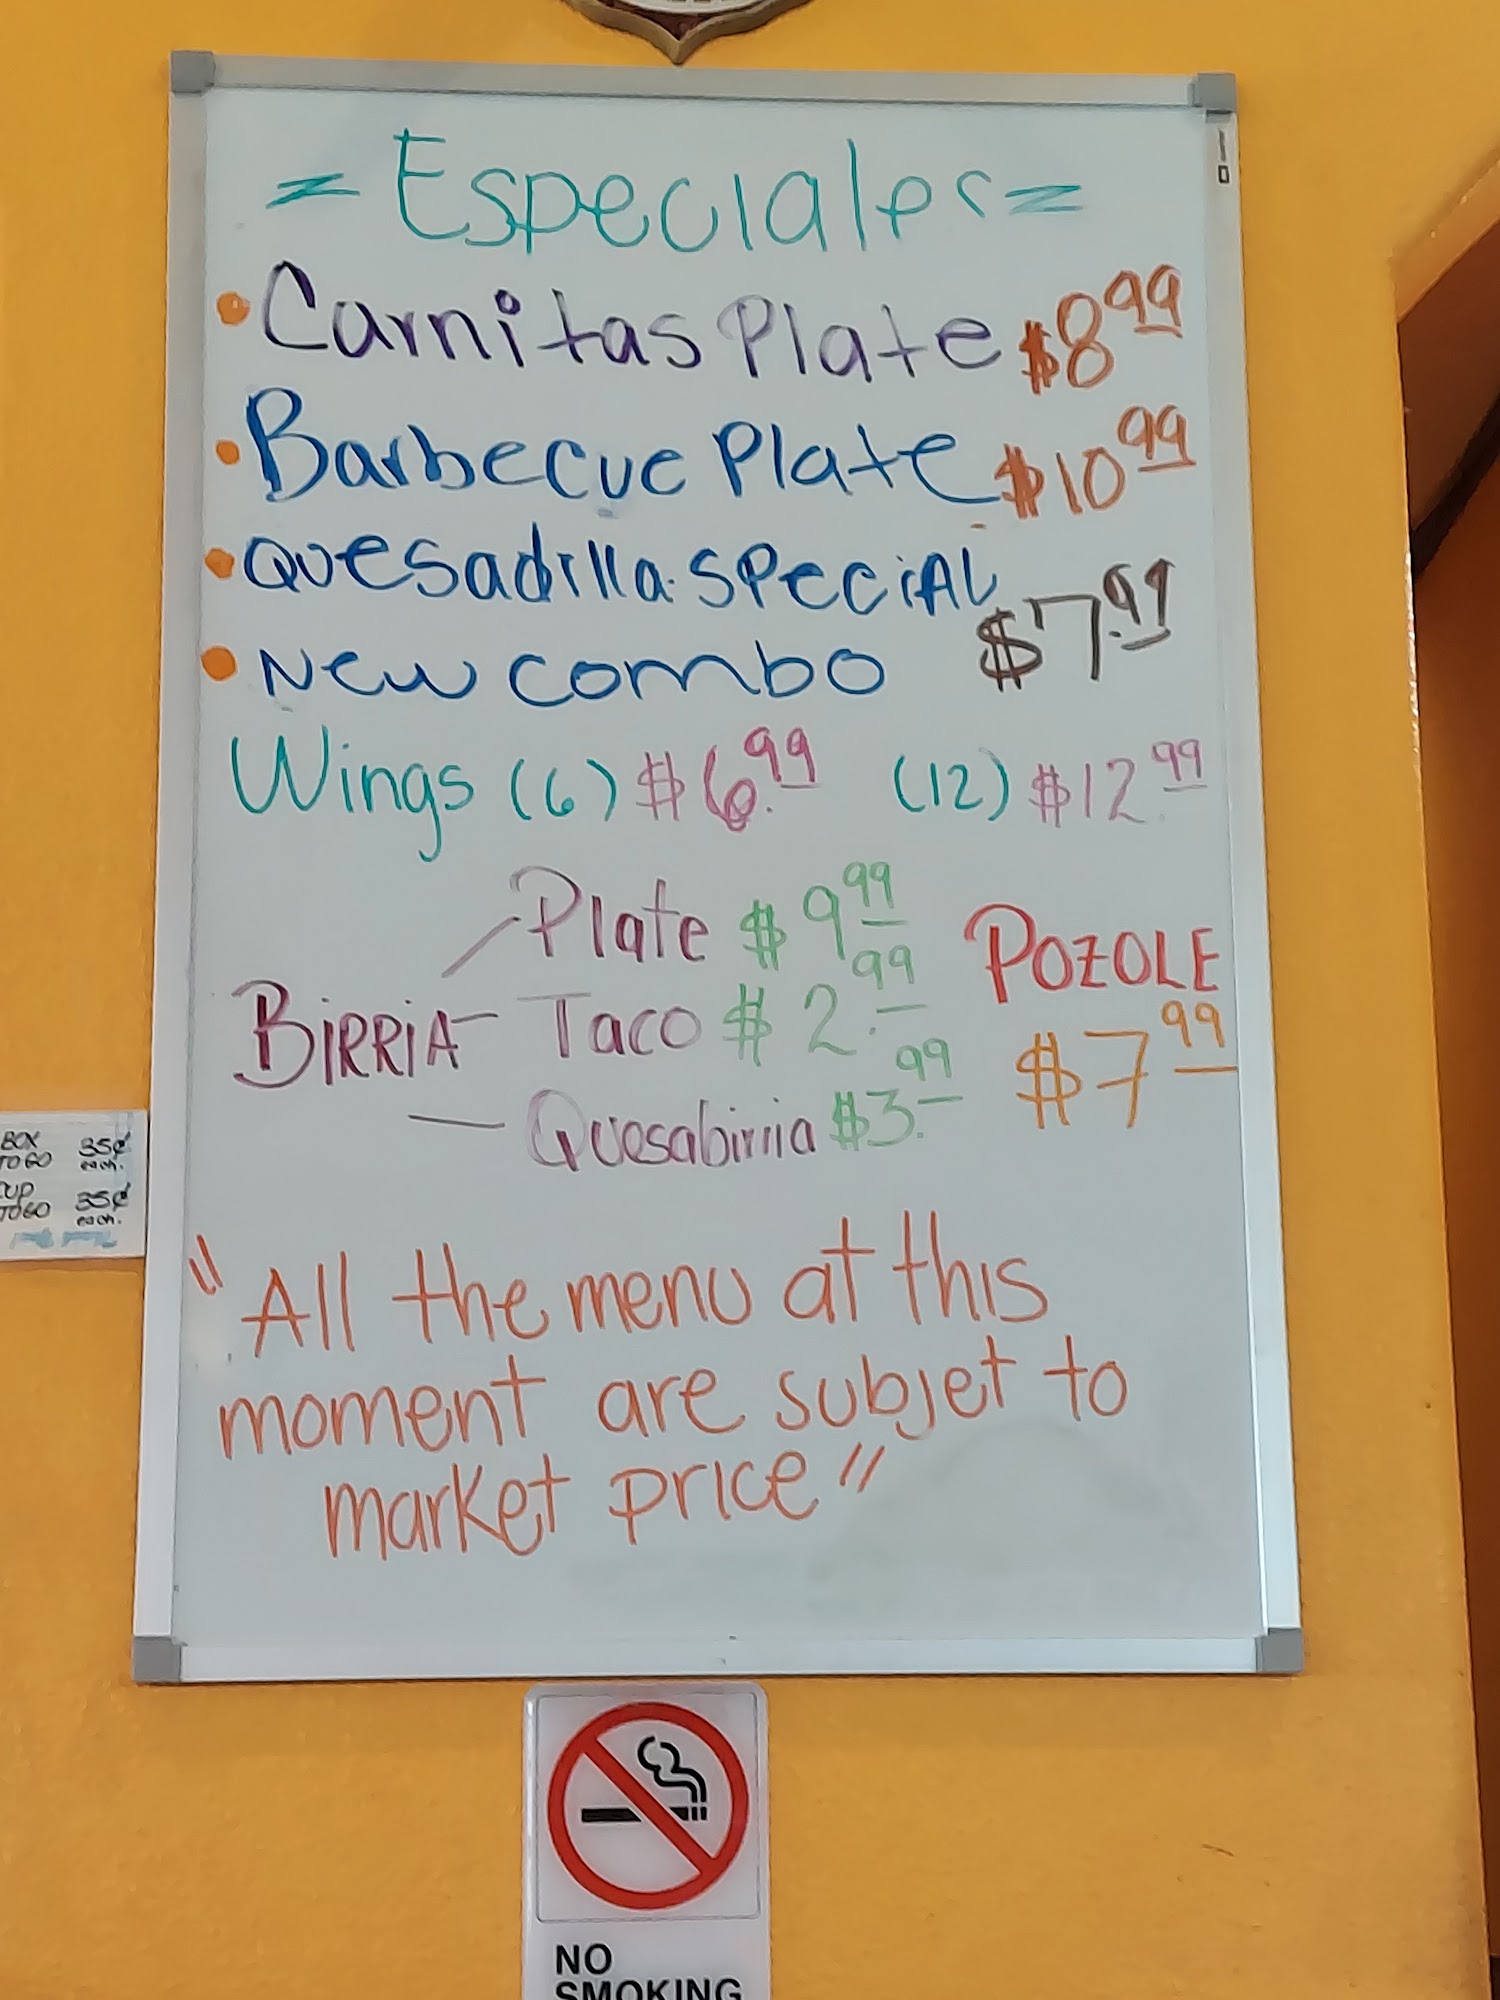 = Especiales =
• Carnitas Plate $8.99
• Barbecue Plate $10.99
• Quesadilla Special
• New combo $7.99
Wings (6) $6.99 (12) $12.99
Plate $9.99
POZOLE
BIRRIA - Taco $2.99
$7.99
- Quesabirria $3.99
BOX 35¢
TO GO each.
CUP 35¢
TO GO each.
"All the menu at this
moment are subjet to
market price"
NO
SMOKING